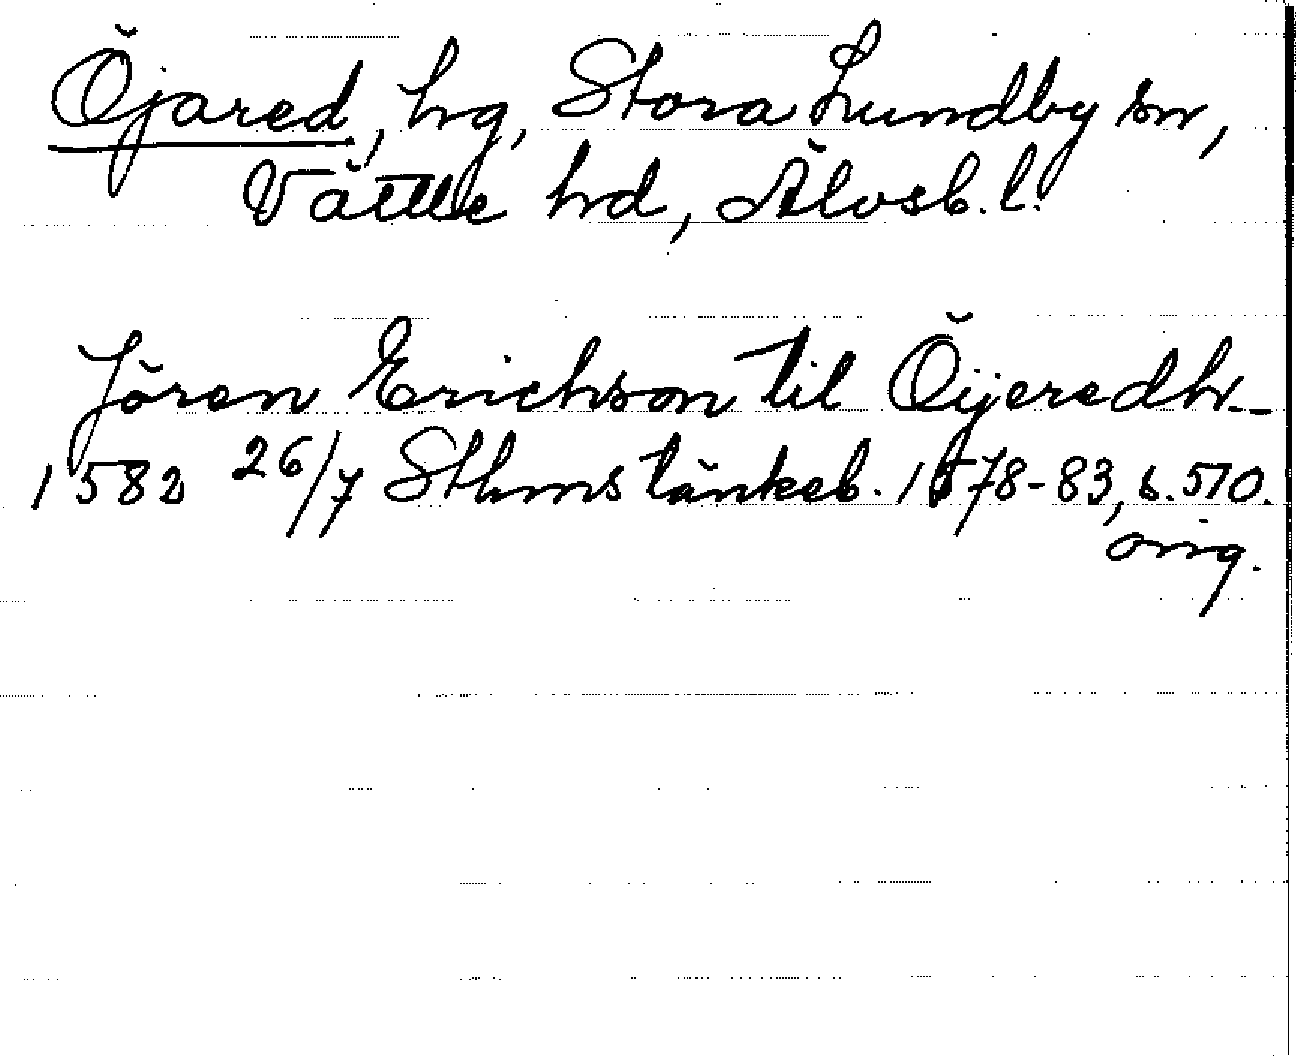 Öjared, hg, Stora Lundby sn,
Vättle hd, Älvsb. l.
Jören Erichson til Öijeredh._
1582 26/7 Sthms tänkeb. 1578-83, s. 570.
orig.